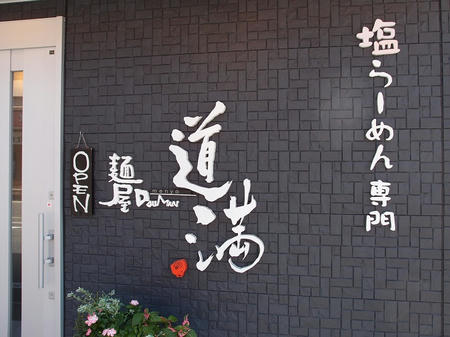 塩らーめん専門
道満
麺屋
menya
DouMan
OPEN